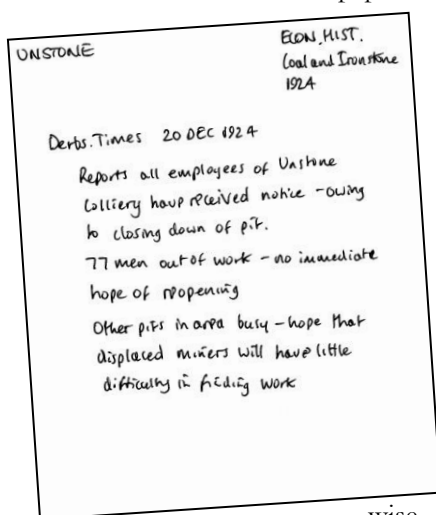 UNSTONE
ECON. HIST.
Coal and Ironstone
1924
Derbs. Times 20 DEC 1924
Reports all employees of Unstone
Colliery have received notice - owing
to closing down of pit.
77 men out of work - no immediate
hope of reopening
Other pits in area busy - hope that
displaced miners will have little
difficulty in finding work
wise